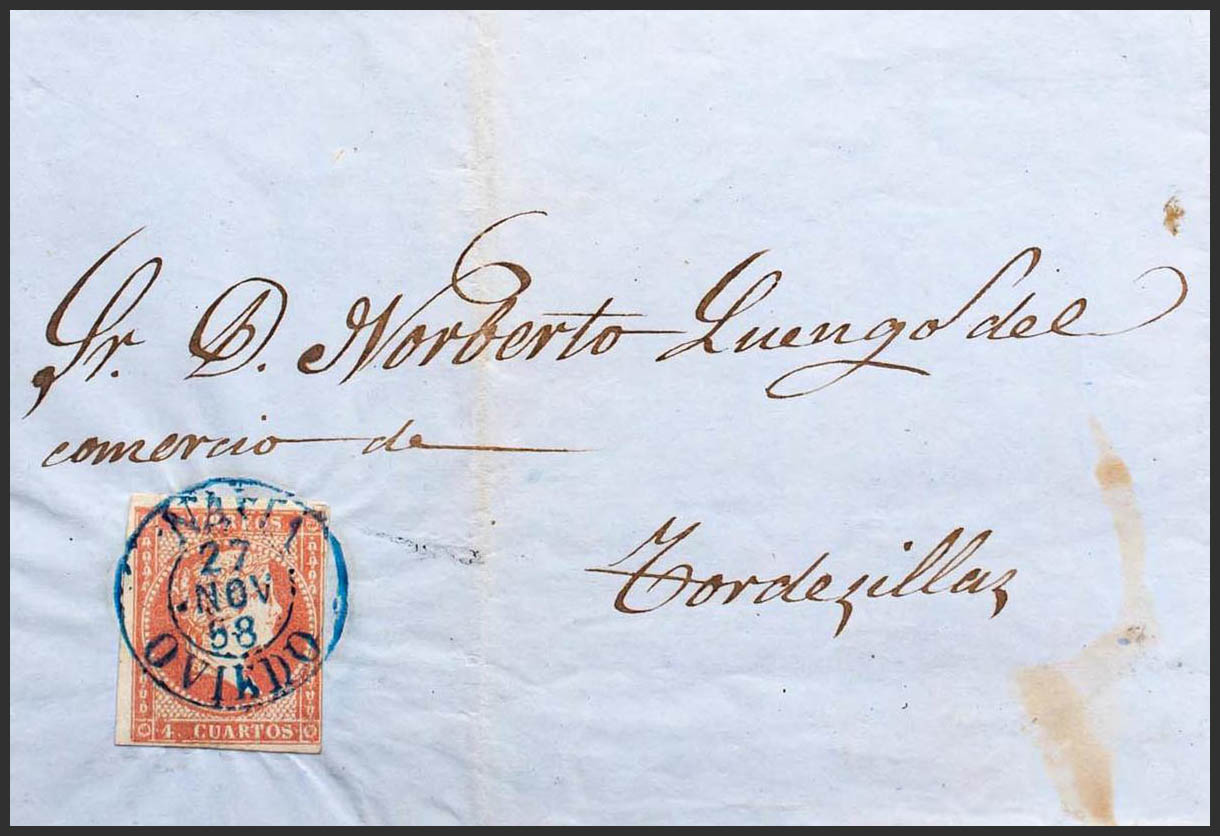 Sr. D. Norberto Luengo del
comercio de
Tordezillaz
27
NOV
58
OVIEDO
4. CUARTOS